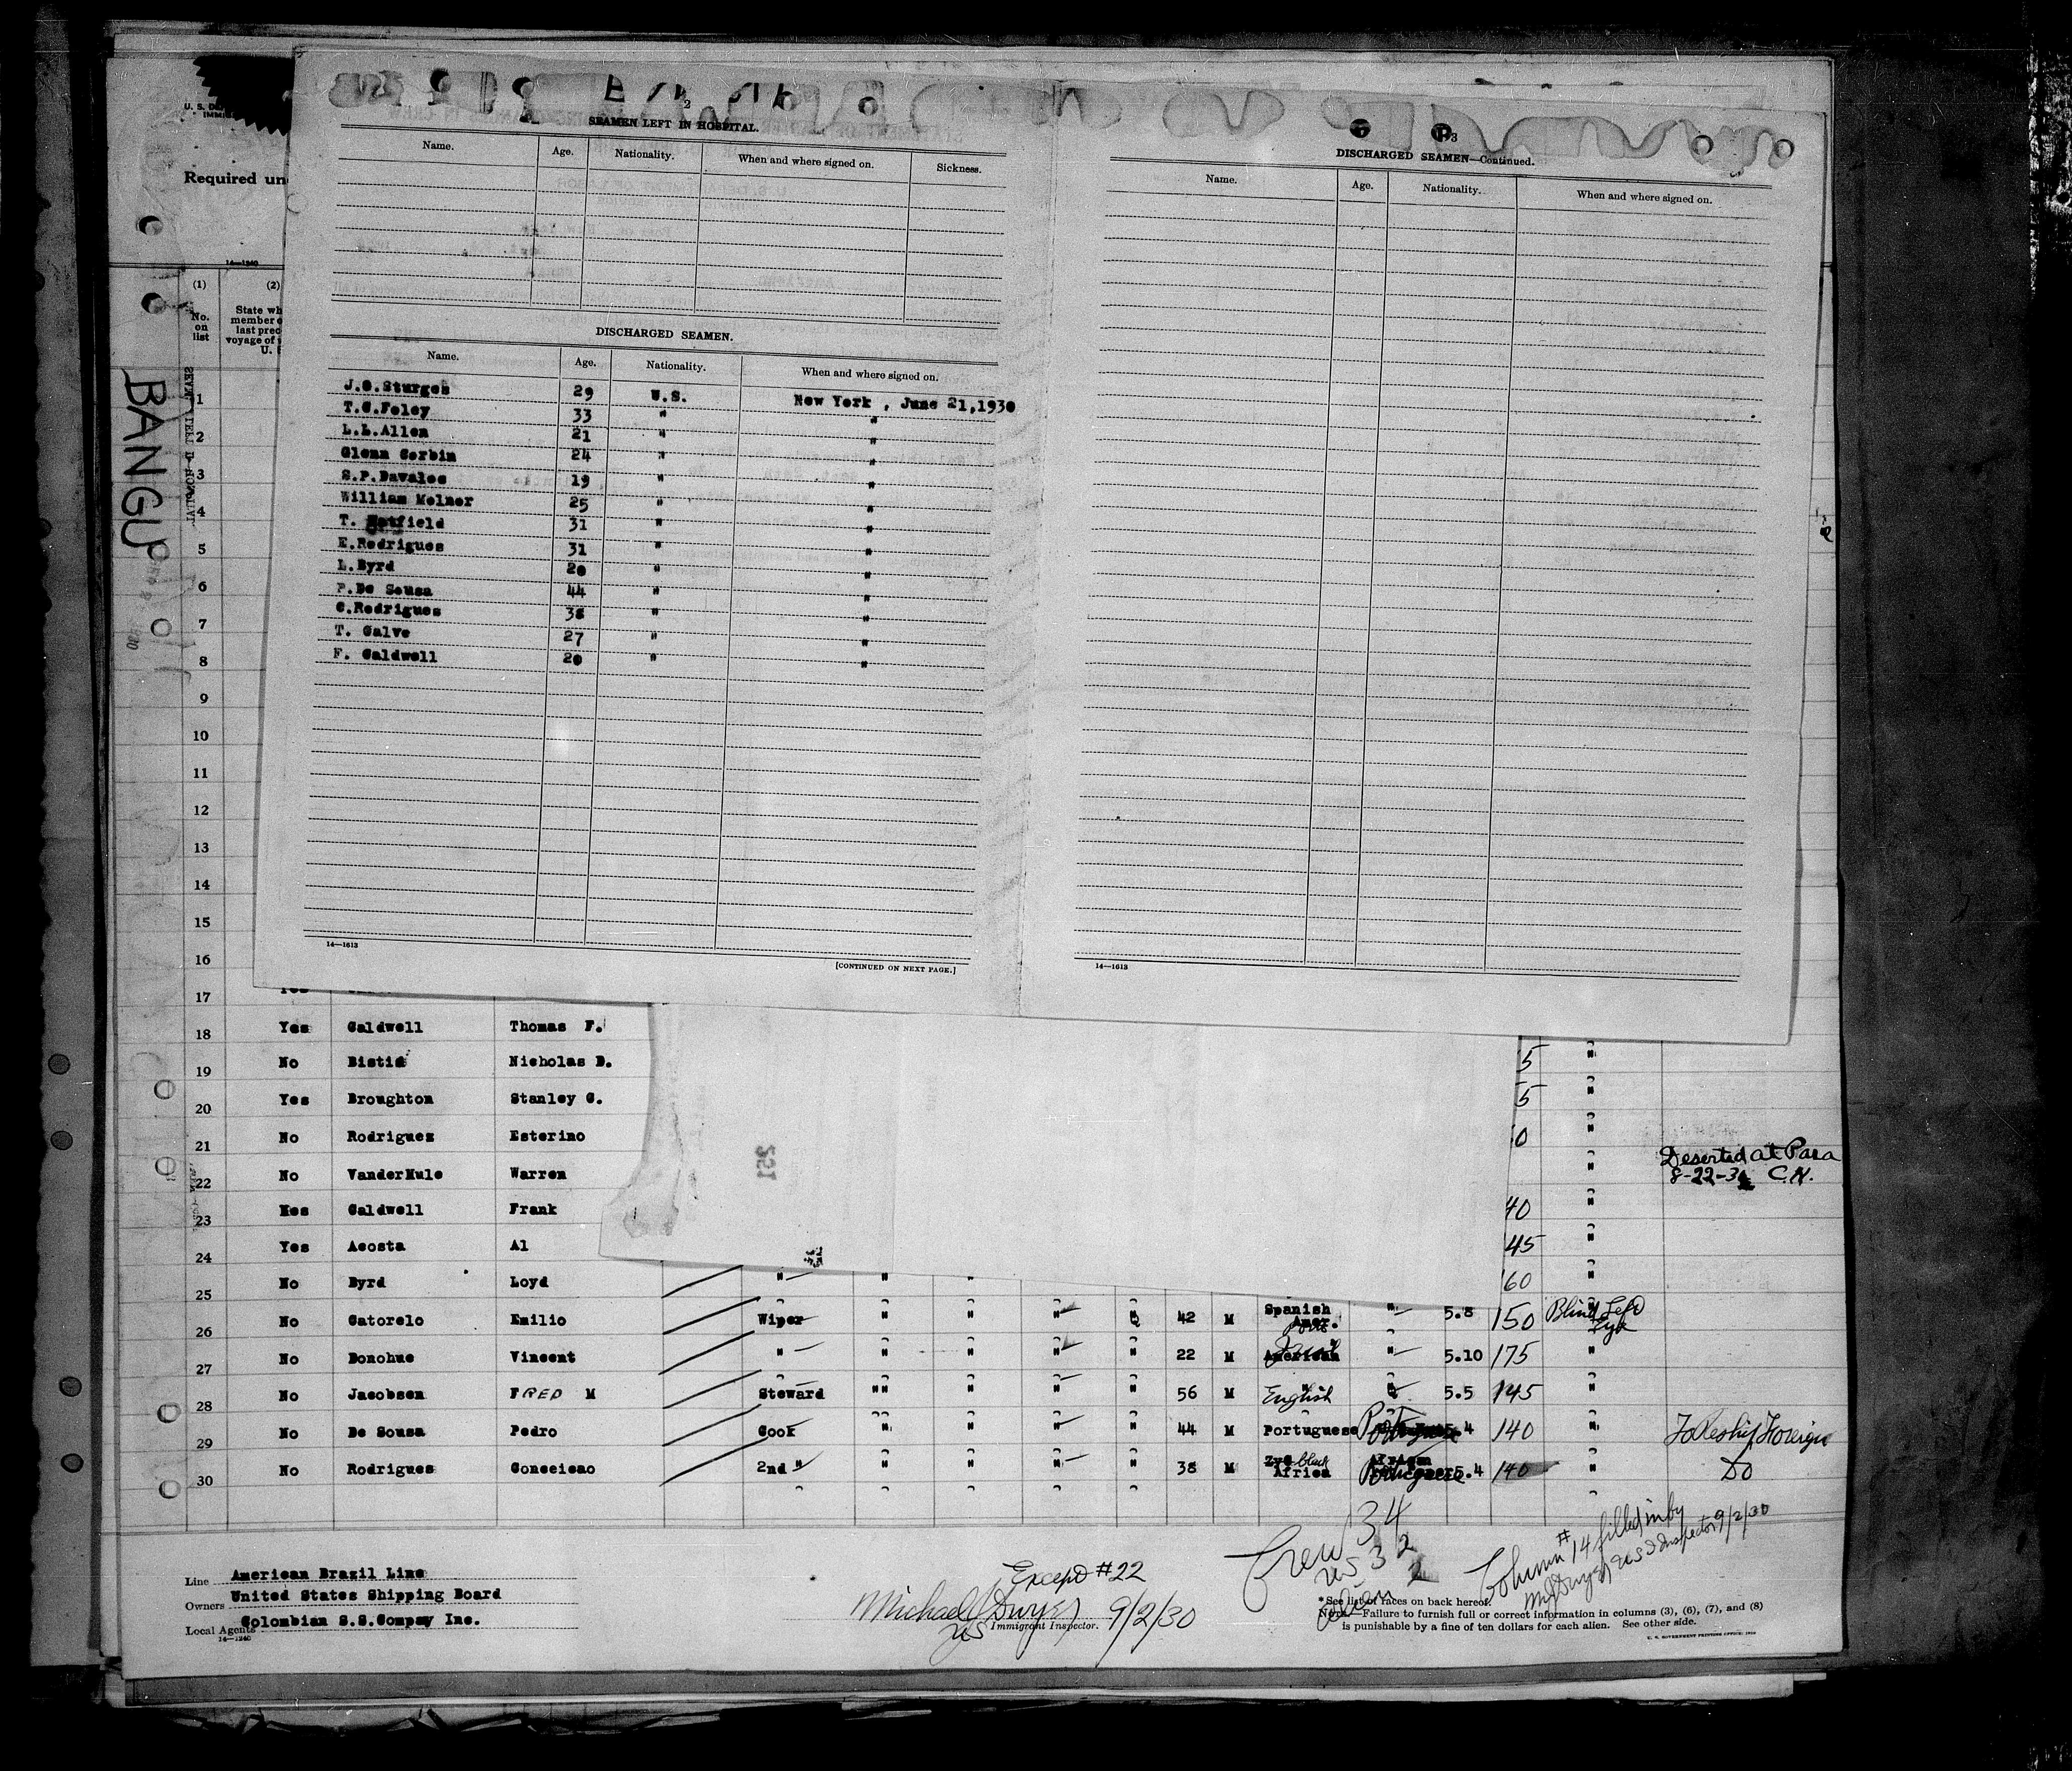 2
SEAMEN LEFT IN HOSPITAL.
Name. Age. Nationality. When and where signed on. Sickness.
DISCHARGED SEAMEN.
Name. Age. Nationality. When and where signed on.
J.G.Sturges 29 U.S. New York , June 21,1930
T.C.Foley 33 " "
L.L.Allen 21 " "
Glenn Corbin 24 " "
S.P.Davalos 19 " "
William Melner 25 " "
T. Hatfield 31 " "
E.Rodrigues 31 " "
L.Byrd 20 " "
P.De Sousa 44 " "
C.Rodrigues 38 " "
T. Calve 27 " "
F. Caldwell 20 " "
14—1613
[CONTINUED ON NEXT PAGE.]
3
DISCHARGED SEAMEN—Continued.
Name. Age. Nationality. When and where signed on.
14—1613
U. S. D
IMMI
Required un
14—1240
(1) (2)
No. on list
State wh
member o
last prec
voyage of
U. S
BANGU
SEAMEN LEFT IN HOSPITAL
1
2
3
4
5
6
7
8
9
10
11
12
13
14
15
16
17 Yes
18 Yes Caldwell Thomas F.
19 No Bistis Nicholas D. 5 "
20 Yes Broughton Stanley C. 5 "
21 No Rodriguez Esterino 0 "
22 No VanderMule Warren " Deserted at Para
8-22-30 C.H.
23 Yes Caldwell Frank 40 "
24 Yes Acosta Al 45 "
25 No Byrd Loyd " " " 60 "
26 No Catorelo Emilio Wiper " " " " 42 M Spanish Amer. " 5.8 150 Blind Left Eye
27 No Donohue Vincent " " " " " 22 M American " 5.10 175 "
28 No Jacobsen FRED M Steward "" " " " 56 M English " 5.5 145 "
29 No De Sousa Pedro Cook " " " " 44 M Portuguese 5.4 140 " To Reship Foreign
30 No Rodrigues Conceicao 2nd " " " " " 38 M black Africa Portuguese 5.4 140 " Do
251
Crew 34
US 32
Alien 2
Column # 14 filled in by
M J Dwyer US I Inspector 9/2/30
Except #22
Michael J Dwyer 9/2/30
US Immigrant Inspector.
Line American Brazil Line
Owners United States Shipping Board
Local Agents Colombian S.S.Compay Inc.
14—1240
* See list of races on back hereof.
NOTE.—Failure to furnish full or correct information in columns (3), (6), (7), and (8)
is punishable by a fine of ten dollars for each alien. See other side.
U. S. GOVERNMENT PRINTING OFFICE: 1930